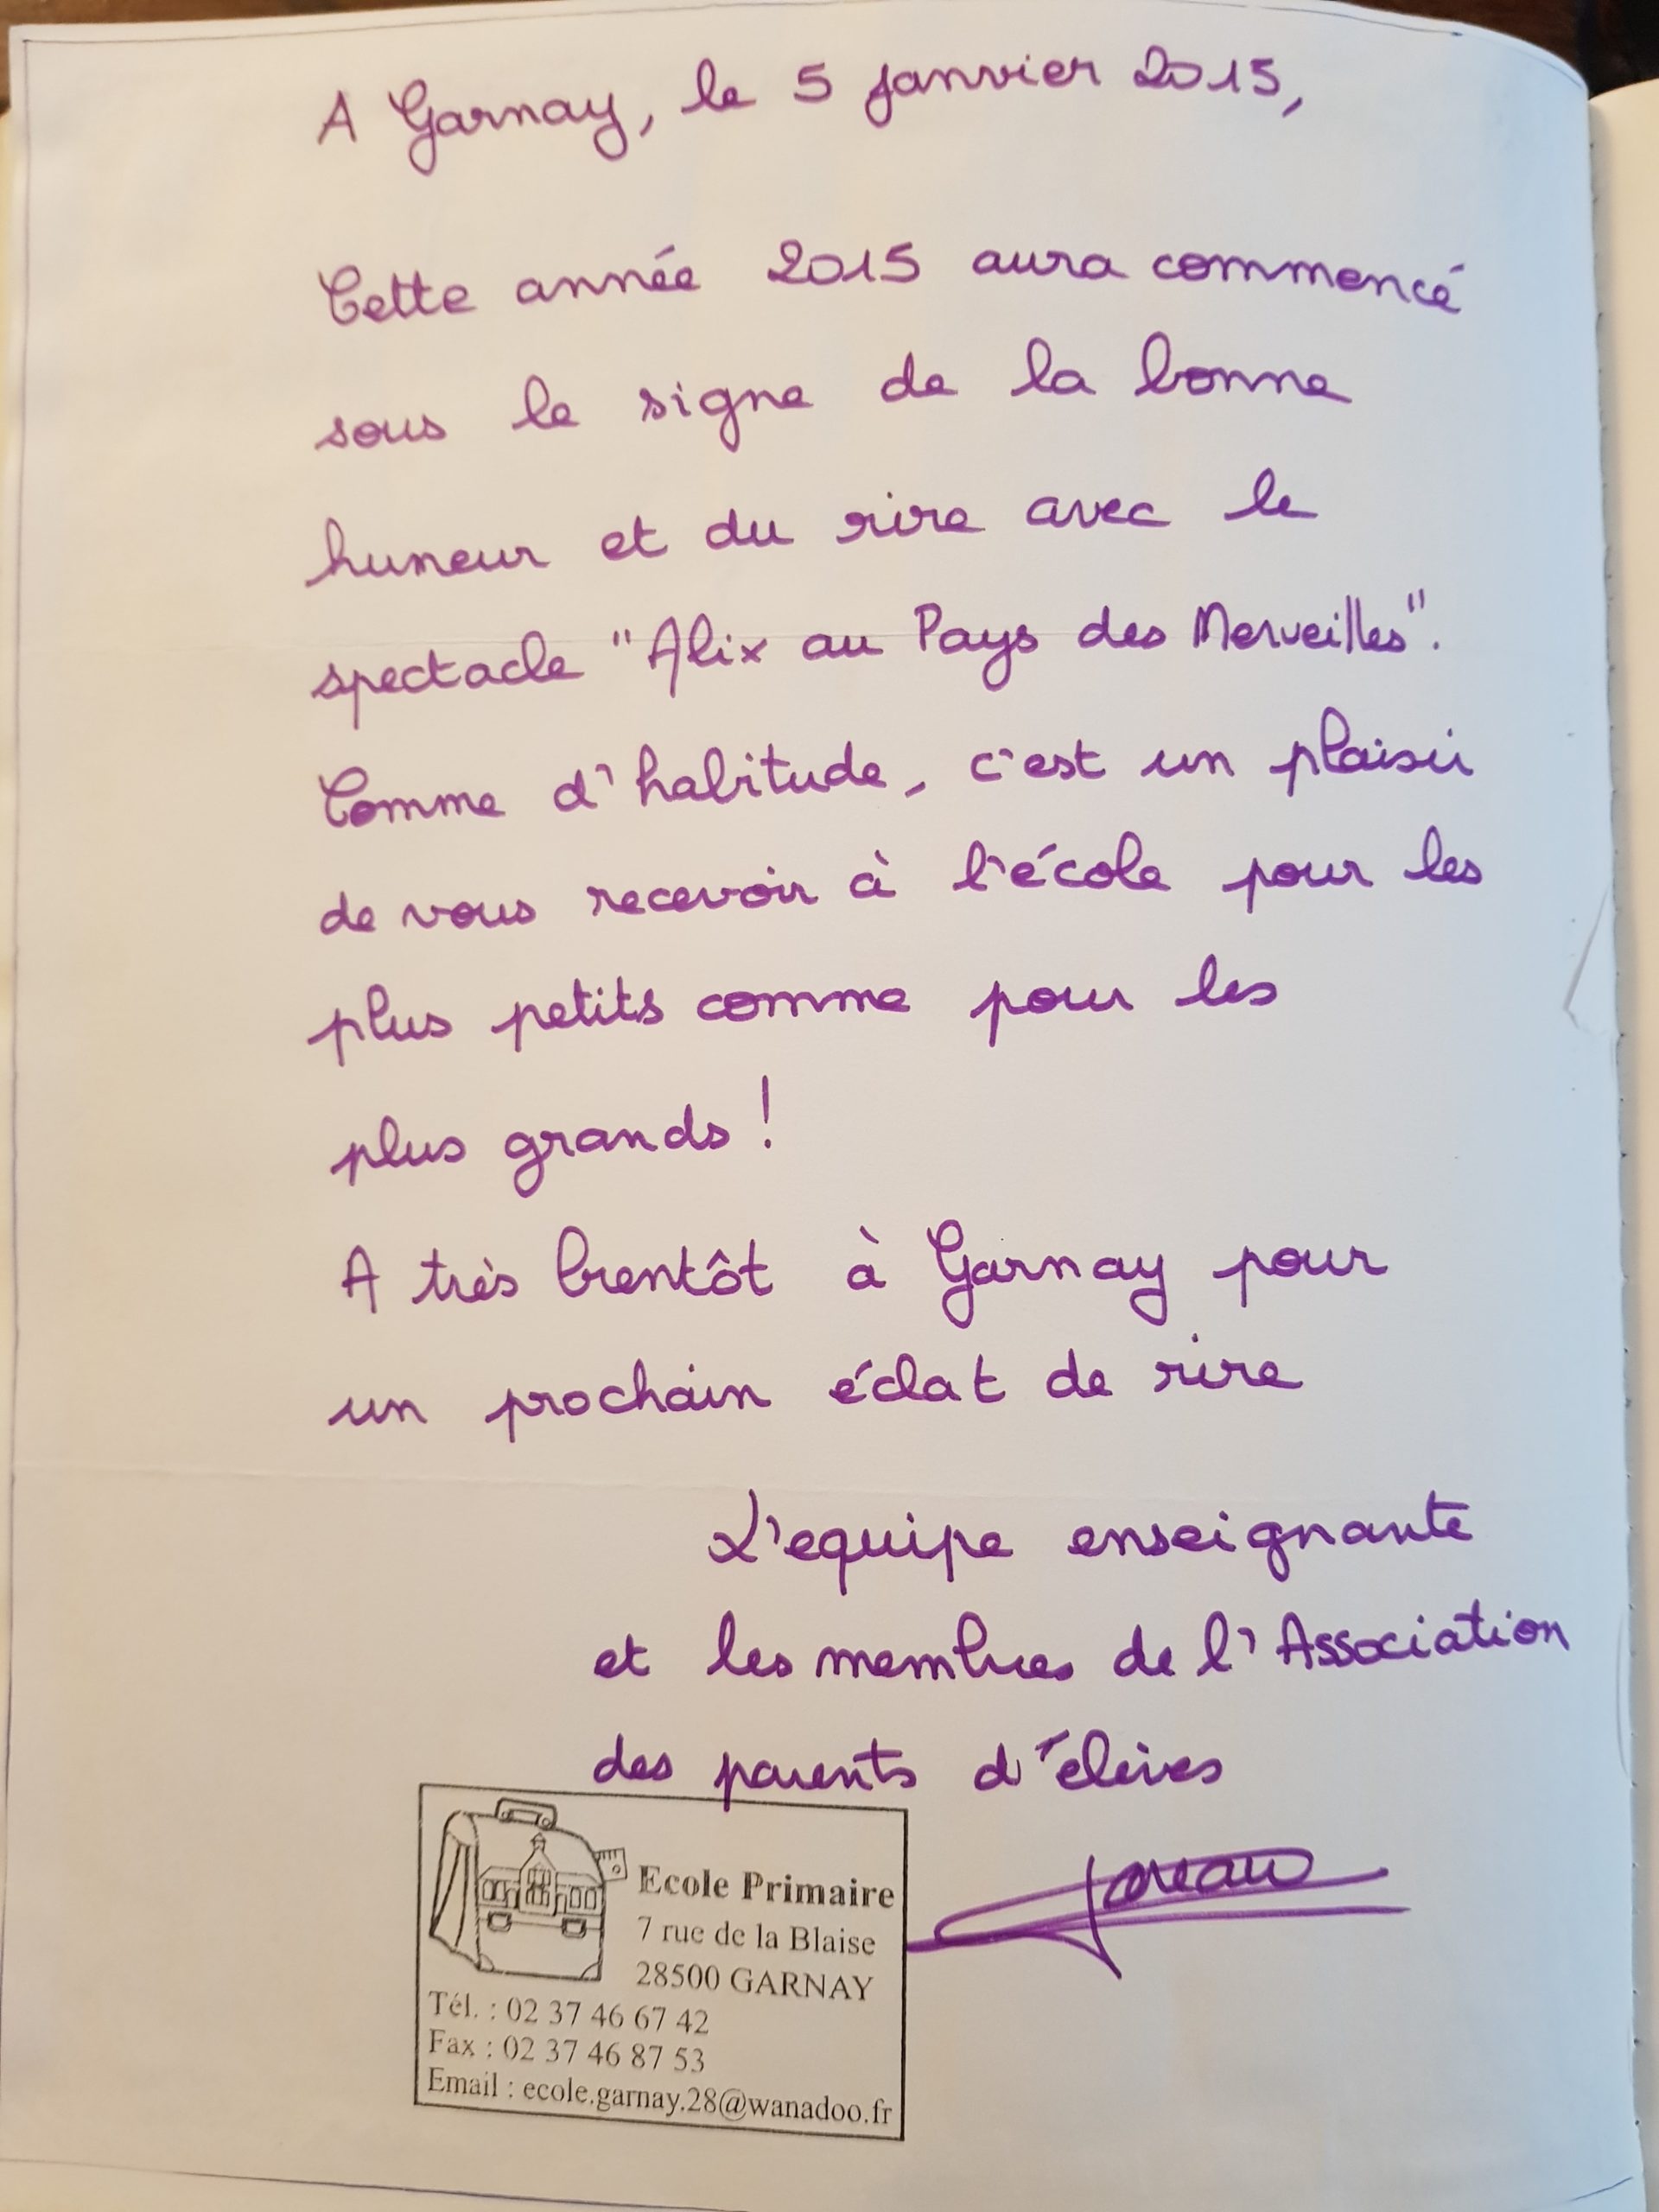 A Garnay, le 5 janvier 2015,
Cette année 2015 aura commencé
sous le signe de la bonne
humeur et du rire avec le
spectacle "Alix au Pays des Merveilles".
Comme d'habitude, c'est un plaisir
de vous recevoir à l'école pour les
plus petits comme pour les
plus grands !
A très bientôt à Garnay pour
un prochain éclat de rire
L'equipe enseignante
et les membres de l'Association
des parents d'élèves
Ecole Primaire
7 rue de la Blaise
28500 GARNAY
Tél. : 02 37 46 67 42
Fax : 02 37 46 87 53
Email : ecole.garnay.28@wanadoo.fr